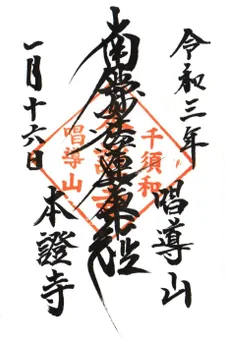 令和三年
唱導山
南無妙法蓮華経
一月十六日
本證寺
千須和
唱導山